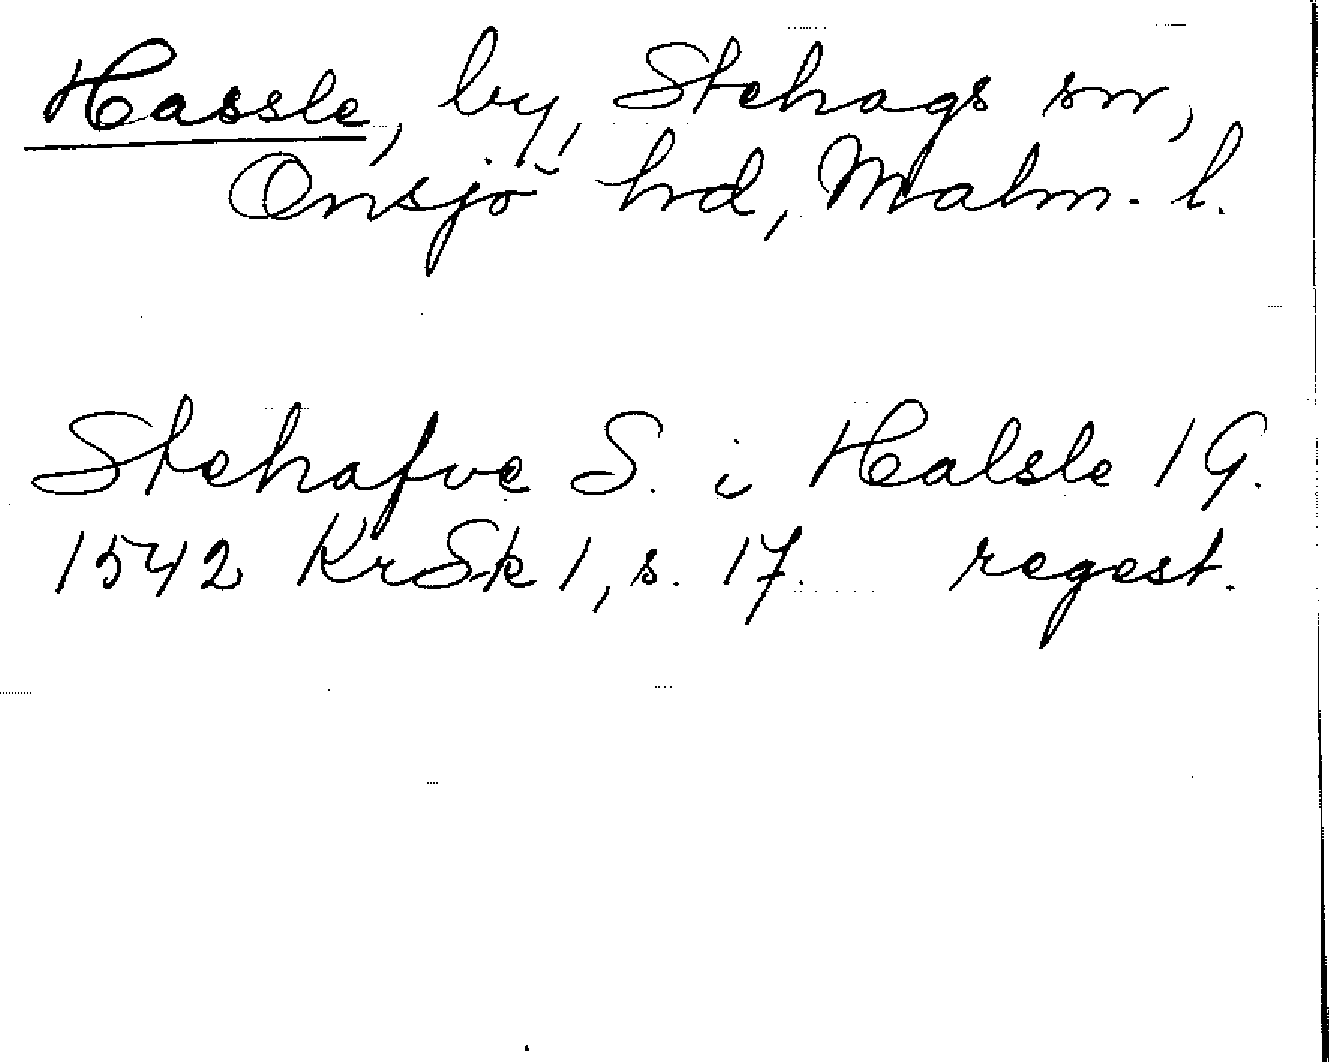 Hassle, by, Stehags sn,
Onsjö hd, Malm. l.
Stehafve S. i Halsle 1 G.
1542 KrSk 1, s. 17. regest.